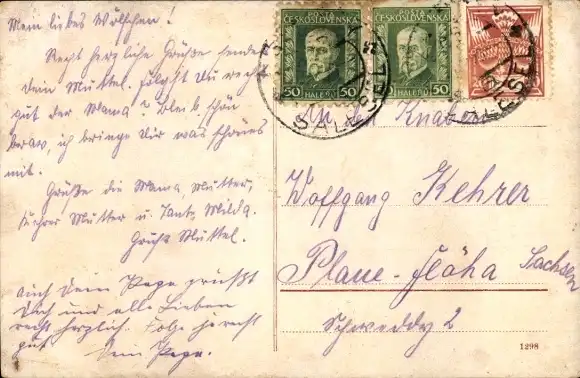 Mein liebes Wölfchen!
Recht herzliche Grüße sendet
Dein Muttel. folgst Du recht
gut der Mama? Bleib schön
brav, ich bringe Dir was schönes
mit.
Grüße die Mama, Mutter,
Mutter u. Tante Milda.
Gruß Muttel.
auch Dein Papa grüßt
Dich und alle Lieben
recht herzlich. Folge ja recht
gut
Dein Papa.
POSTA
ČESKOSLOVENSKÁ
50 HALÉŘŮ 50
POSTA
ČESKOSLOVENSKÁ
HALÉŘŮ 50
An den Knaben
Wolfgang Kehrer
Plaue-Flöha Sachsen
2
1298